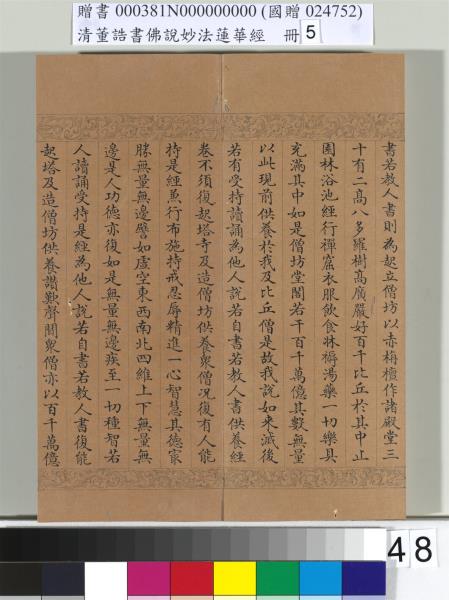 贈書 000381N000000000 (國贈 024752)
清董誥書佛說妙法蓮華經 冊 5
書若教人書則為起立僧坊以赤栴檀作諸殿堂三
十有二高八多羅樹高廣嚴好百千比丘於其中止
園林浴池經行禪窟衣服飲食牀褥湯藥一切樂具
充滿其中如是僧坊堂閣若干百千萬億其數無量
以此現前供養於我及比丘僧是故我說如來滅後
若有受持讀誦為他人說若自書若教人書供養經
卷不須復起塔寺及造僧坊供養眾僧況復有人能
持是經兼行布施持戒忍辱精進一心智慧其德㝡
勝無量無邊譬如虛空東西南北四維上下無量無
邊是人功德亦復如是無量無邊疾至一切種智若
人讀誦受持是經為他人說若自書若教人書復能
起塔及造僧坊供養讚歎聲聞眾僧亦以百千萬億
48